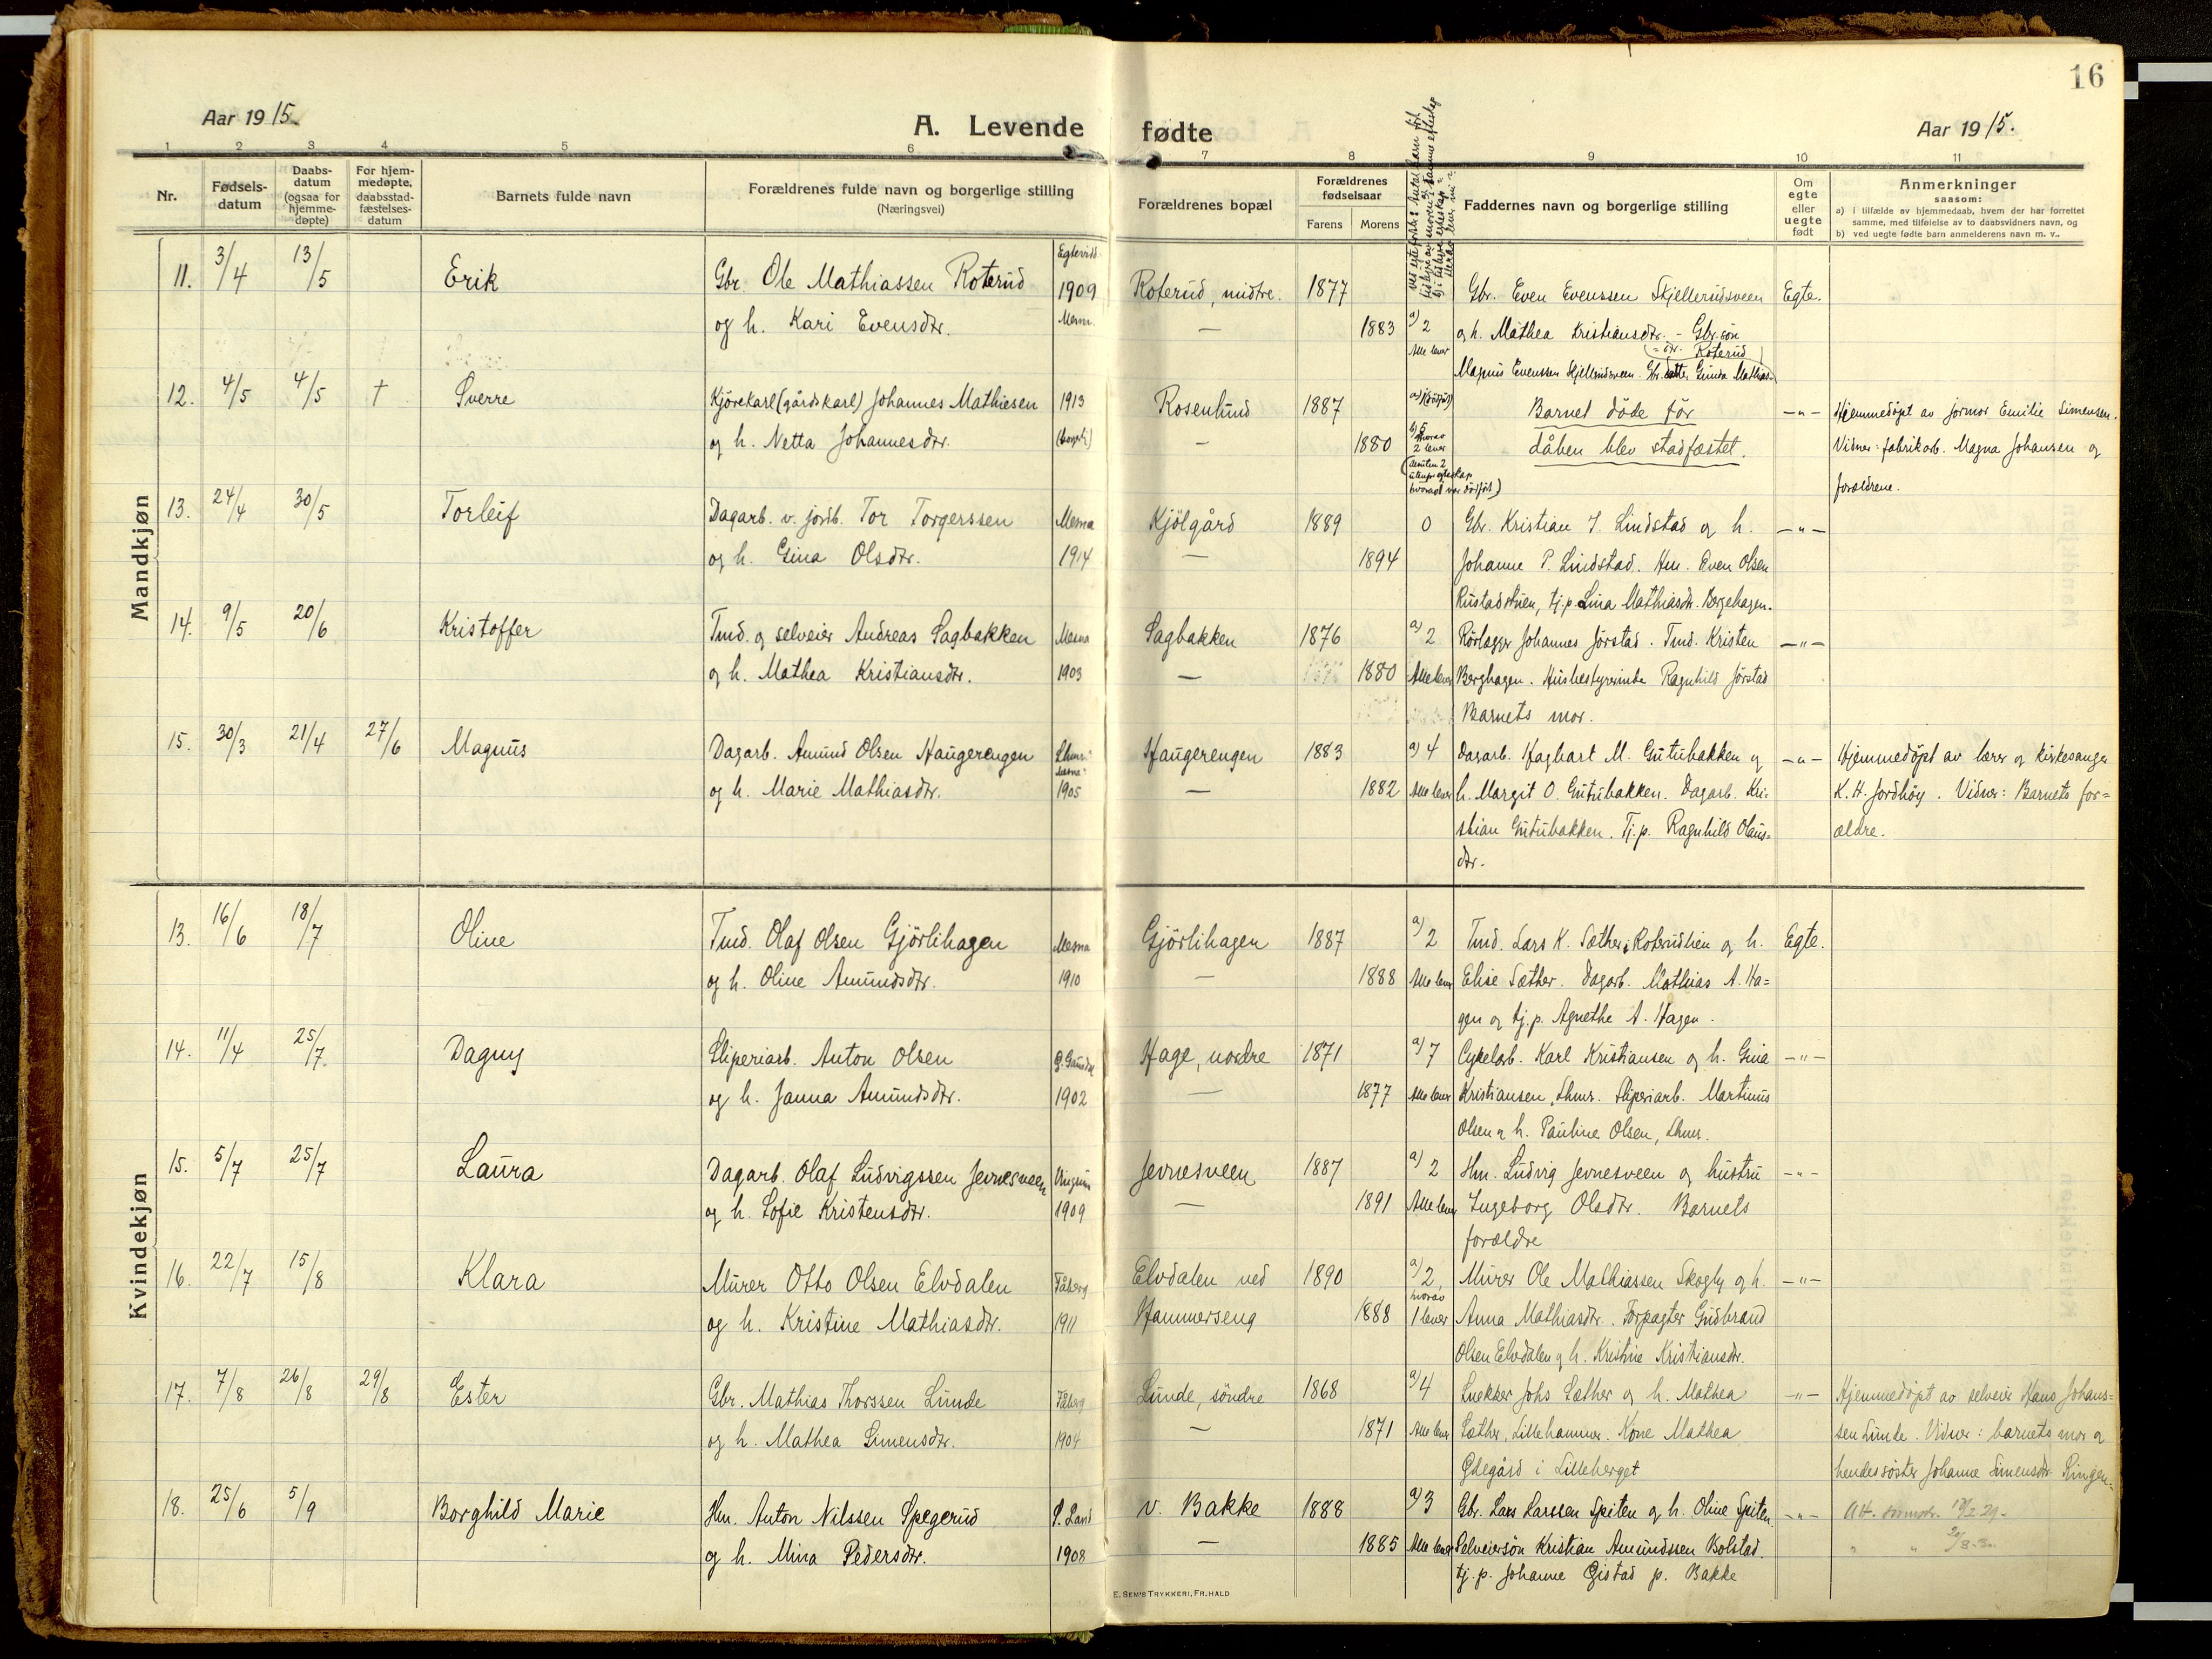 16
Aar 1915.
A. Levende fødte
Aar 1915.
1 2 3 4 5 6 7 8 9 10 11
Nr.
Fødsels-
datum
Daabs-
datum
(ogsaa for
hjemme-
døpte)
For hjem-
medøpte,
daabsstad-
fæstelses-
datum
Barnets fulde navn
Forældrenes fulde navn og borgerlige stilling
(Næringsvei)
Forældrenes bopæl
Forældrenes
fødselsaar
Farens Morens
Faddernes navn og borgerlige stilling
Om
egte
eller
uegte
født
Anmerkninger
saasom:
a) i tilfælde av hjemmedaab, hvem der har forrettet
samme, med tilføielse av to daabsvidners navn, og
b) ved uegte fødte barn anmelderens navn m. v..
Mandkjøn
11. 3/4 13/5 Erik Gbr. Ole Mathiassen Roterud 1909 Roterud, midtre. 1877 Gbr. Even Evenssen Skjellerudsveen Egte.
og h. Kari Evensdtr. — 1883 a) 2 og h. Mathea Kristiansdtr. - Gbr.søn
Alle lever Roterud
Magnus Evenssen Skjellerudsveen. Gbr.datter Gunda Mathias-
12. 4/5 4/5 † Sverre Kjørekarl (gårdskarl) Johannes Mathiesen 1913 Rosenlund 1887 Barnet døde før —"— Hjemmedøpt av jormor Emilie Simensen.
og h. Netta Johannesdtr. — 1880 b) 5 hvorav 2 lever dåben blev stadfæstet. Vidner: fabrikarb. Magna Johansen og
forældrene.
13. 24/4 30/5 Torleif Dagarb. v. jordb. Tor Torgerssen Mesna Kjölgård 1889 0 Gbr. Kristian J. Lindstad og h. —"—
og h. Gina Olsdtr. 1914 — 1894 Johanne P. Lindstad. Hm. Even Olsen
Rustadstuen, tj.p. Lina Mathiasdtr. Bergehagen.
14. 9/5 20/6 Kristoffer Tmd. og selveier Andreas Sagbakken Mesna Sagbakken 1876 a) 2 Rørlægger Johannes Jørstad. Tmd. Kristen —"—
og h. Mathea Kristiansdtr. 1903 — 1880 Alle lever Berghagen. Husbestyrerinde Ragnhild Jørstad
Barnets mor.
15. 30/3 21/4 27/6 Magnus Dagarb. Amund Olsen Haugerengen Haugerengen 1883 a) 4 Dagarb. Hagbart M. Gutubakken og —"— Hjemmedøpt av lærer og kirkesanger
og h. Marie Mathiasdtr. 1905 — 1882 Alle lever h. Margit O. Gutubakken. Dagarb. Kri-
K. H. Jordhøy. Vidner: Barnets for=
stian Gutubakken. Tj.p. Ragnhild Olaus= ældre.
dtr.
Kvindekjøn
13. 16/6 18/7 Oline Tmd. Olaf Olsen Gjörlihagen Mesna Gjörlihagen 1887 a) 2 Tmd. Lars K. Sæther, Roterudlien og h. Egte.
og h. Oline Amundsdtr. 1910 — 1888 Alle lever Elise Sæther. Dagarb. Mathias A. Ha=
gen og tj.p. Agnethe A. Hagen.
14. 11/4 25/7. Dagny Sliperiarb. Anton Olsen Hage, nordre 1871 a) 7 Cykelarb. Karl Kristiansen og h. Gina —"—
og h. Janna Amundsdtr. 1902 — 1877 Alle lever Kristiansen, Lhmr. Sliperiarb. Martinus
Olsen og h. Pauline Olsen, Lhmr.
15. 5/7 25/7 Laura Dagarb. Olaf Ludvigssen Jevnesveen Vingrum Jevnesveen 1887 a) 2 Hm. Ludvig Jevnesveen og hustru —"—
og h. Sofie Kristensdtr. 1909 — 1891 Alle lever Ingeborg Olsdtr. Barnets
forældre
16. 22/7 15/8 Klara Murer Otto Olsen Elvdalen Fåberg Elvdalen ved 1890 a) 2, Murer Ole Mathiassen Skogly og h. —"—
og h. Kristine Mathiasdtr. 1911 Hammerseng 1888 hvorav 1 lever Anna Mathiasdtr. Forpagter Gudbrand
Olsen Elvdalen og h. Kristine Kristiansdtr.
17. 7/8 26/8 29/8 Ester Gbr. Mathias Thorssen Lunde Fåberg Lunde, söndre 1868 a) 4 Snekker Johs Sæther og h. Mathea —"— Hjemmedøpt av selveier Hans Johans=
og h. Mathea Simensdtr. 1904 — 1871 Alle lever Sæther, Lillehammer. Kone Mathea sen Lunde. Vidner: barnets mor og
Ødegård i Lilleberget hendes søster Johanne Simensdtr. Ringen.
18. 25/6 5/9 Borghild Marie Hm. Anton Nilssen Spegerud S. Land v. Bakke 1888 a) 3 Gbr. Lars Larssen Spiten og h. Oline Spiten. —"—
og h. Mina Pedersdtr. 1908 — 1885 Alle lever Selveiersøn Kristian Amundssen Bolstad.
tj.p. Johanne Gistad p. Bakke
E. SEM'S TRYKKERI, FR. HALD